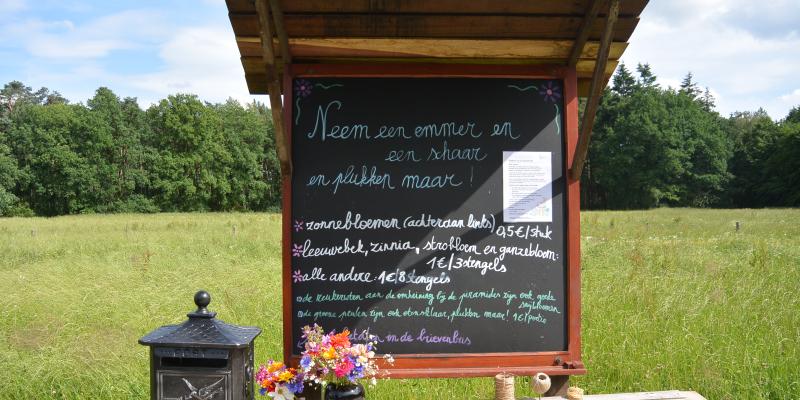 Neem een emmer en
een schaar
en plukken maar!
zonnebloemen (achteraan links) 0,5€/stuk
leeuwebek, zinnia, strobloem en ganzebloem:
1€/3 stengels
alle andere: 1€/8 stengels
de reukerwten aan de omheining bij de piramides zijn ook goede
snijbloemen
de groene peulen zijn ook eetbaar, plukken maar! 1€/portie
in de brievenbus